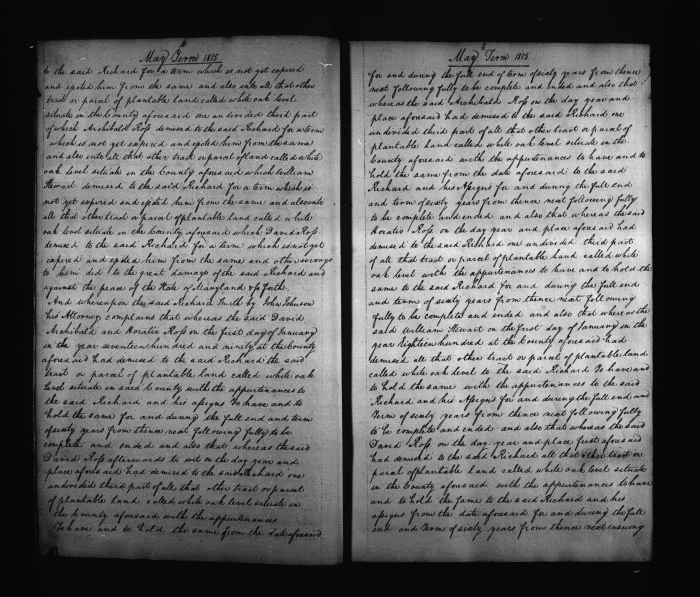 May Term 1815
to the said Richard for a term which is not yet expired
and ejected him from the same and also into all that other
tract or parcel of plantable land called white oak level
situate in the County aforesaid one undivided third part
of which Archibald Ross demised to the said Richard for a term
which is not yet expired and ejected him from the same
and also into all that other tract or parcel of land called white
oak level situate in the County aforesaid which William
Stewart demised to the said Richard for a term which is
not yet expired and ejected him from the same and also into
all that other tract or parcel of plantable land called white
oak level situate in the County aforesaid which David Ross
demised to the said Richard for a term which is not yet
expired and ejected him from the same and other wrongs
to him did to the great damage of the said Richard and
against the peace of the State of Maryland &c forth.
And whereupon the said Richard Smith by John Johnson
his Attorney complains that whereas the said David
Archibald and Horatio Ross on the first day of January
in the year seventeen hundred and ninety at the County
aforesaid had demised to the said Richard the said
tract or parcel of plantable land called white oak
level situate in said County with the appurtenances to
the said Richard and his assigns To have and to
hold the same for and during the full end and term
of sixty years from thence next following fully to be
complete and ended and also that whereas the said
David Ross afterwards to wit on the day year and
place aforesaid had demised to the said Richard one
undivided third part of all that other tract or parcel
of plantable land called white oak level situate in
the County aforesaid with the appurtenances
To have and to hold the same from the date aforesaid
May Term 1815
for and during the full end of term of sixty years from thence
next following fully to be complete and ended and also that
whereas the said Archibald Ross on the day year and
place aforesaid had demised to the said Richard one
undivided third part of all that other tract or parcel of
plantable land called white oak level situate in the
County aforesaid with the appurtenances to have and to
hold the same from the date aforesaid to the said
Richard and his Assigns for and during the full end
and term of sixty years from thence next following fully
to be complete and ended and also that whereas the said
Horatio Ross on the day year and place aforesaid had
demised to the said Richard one undivided third part
of all that tract or parcel of plantable land called white
oak level with the appurtenances to have and to hold the
same to the said Richard for and during the full end
and term of sixty years from thence next following
fully to be complete and ended and also that whereas the
said William Stewart on the first day of January in the
year Eighteen hundred at the County aforesaid had
demised all that other tract or parcel of plantable land
called white oak level to the said Richard To have and
to hold the same with the appurtenances to the said
Richard and his Assigns for and during the full end and
Term of sixty years from thence next following fully
to be complete and ended and also that whereas the said
David Ross on the day year and place first aforesaid
had demised to the said Richard all that other tract or
parcel of plantable land called white oak level situate
in the County aforesaid with the appurtenances To have
and to hold the same to the said Richard and his
assigns from the date aforesaid for and during the full
end and Term of sixty years from thence next ensuing